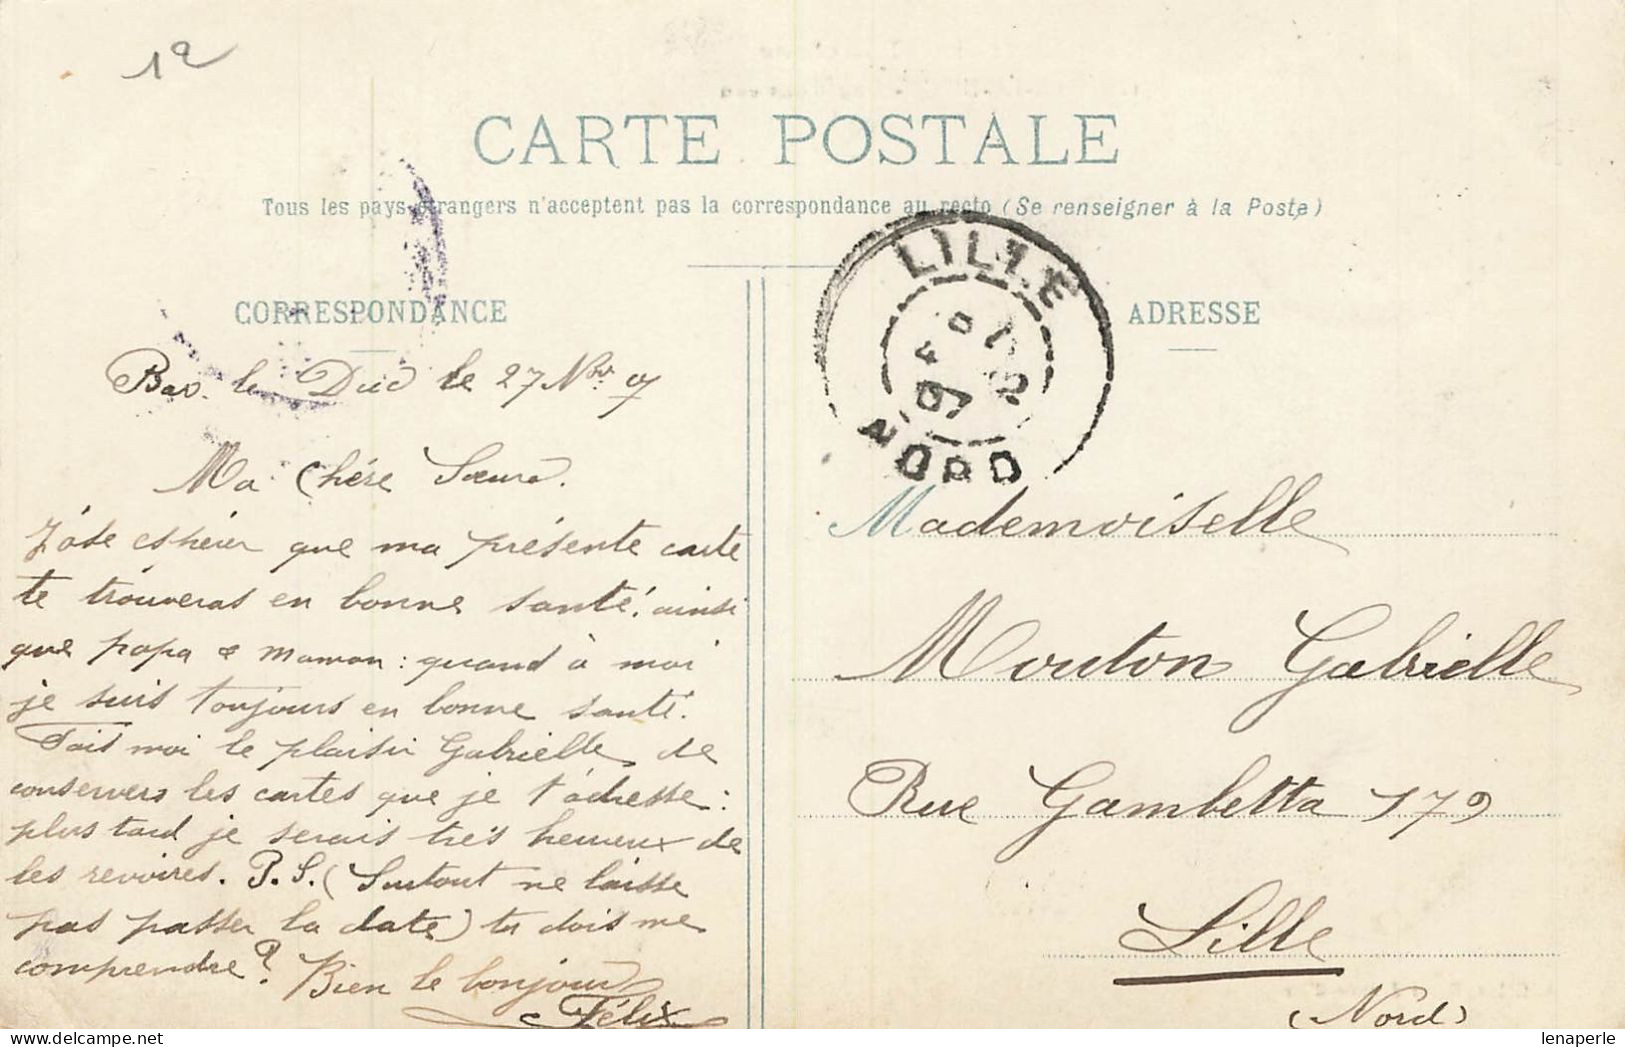 12
CARTE POSTALE
Tous les pays étrangers n'acceptent pas la correspondance au recto (Se renseigner à la Poste)
CORRESPONDANCE
Bar. le Duc le 27 Nbr 07
Ma Chére Sœur.
J'ose espérer que ma présente carte
te trouveras en bonne santé. ainsi
que papa & maman : quand à moi
je suis toujours en bonne santé.
Fais moi le plaisir Gabrielle de
conservers les cartes que je t'adresse :
plus tard je serais très heureux de
les revoires. P.S. (Surtout ne laisse
pas passer la date) tu dois me
comprendre ? Bien le bonjour
Félix
LILLE
07
NORD
ADRESSE
Mademoiselle
Mouton Gabrielle
Rue Gambetta 179
Lille
(Nord)
lenaperle